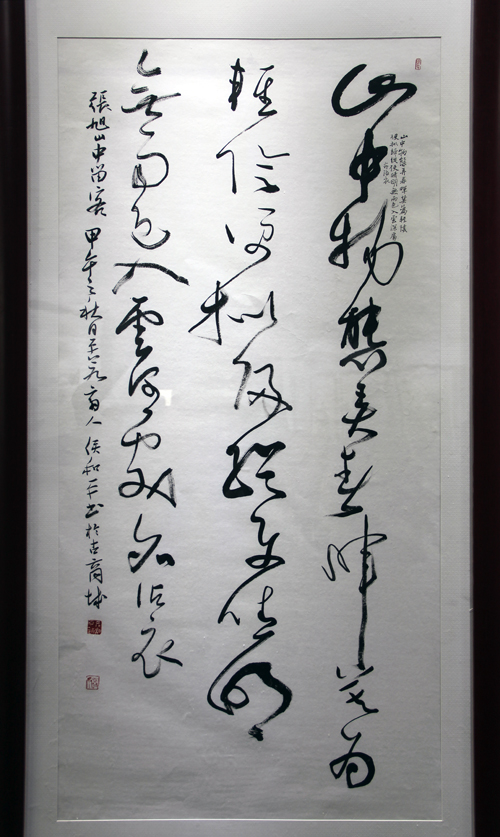 山中物態弄春暉莫為
山中物態弄春暉莫為輕陰
便拟歸縱使晴明無雨色入雲深處
亦沾衣
輕陰便拟歸縱使晴明
無雨色入雲深處亦沾衣
張旭山中留客 甲午之秋日 商人 侯和平书於古商城